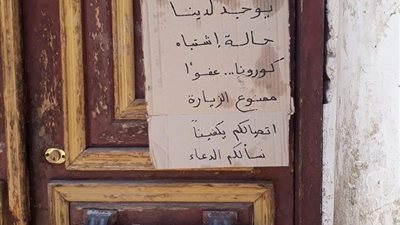 يوجد لدينا
حالة إشتباه
كورونا... عفوًا
ممنوع الزيارة
اتصالكم يكفينا
نسألكم الدعاء